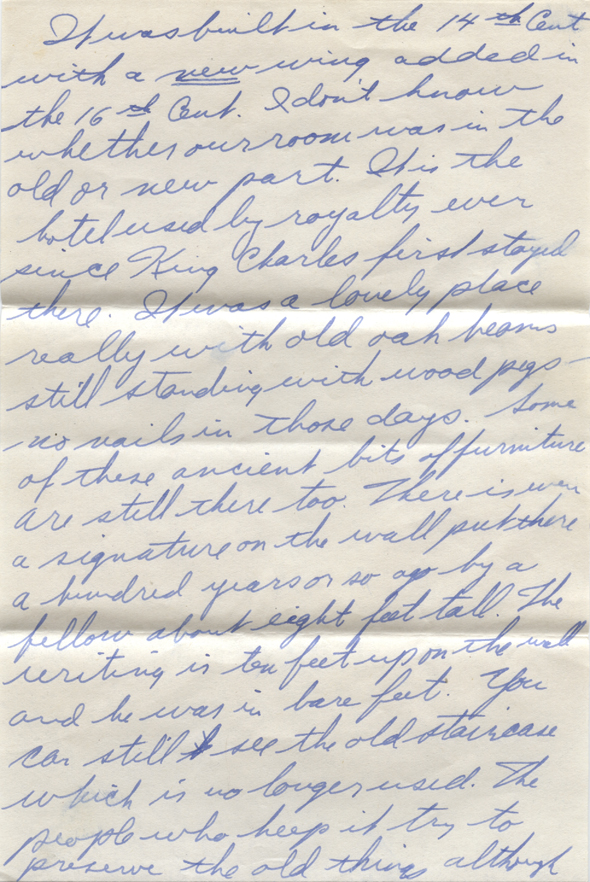 It was built in the 14th Cent
with a new wing added in
the 16th Cent. I don't know
whether our room was in the
old or new part. It is the
hotel used by royalty ever
since King Charles first stayed
there. It was a lovely place
really with old oak beams
still standing with wood pegs -
no nails in those days. Some
of these ancient bits of furniture
are still there too. There is even
a signature on the wall put there
a hundred years or so ago by a
fellow about eight feet tall. The
writing is ten feet up on the wall
and he was in bare feet. You
can still see the old staircase
which is no longer used. The
people who keep it try to
preserve the old things although